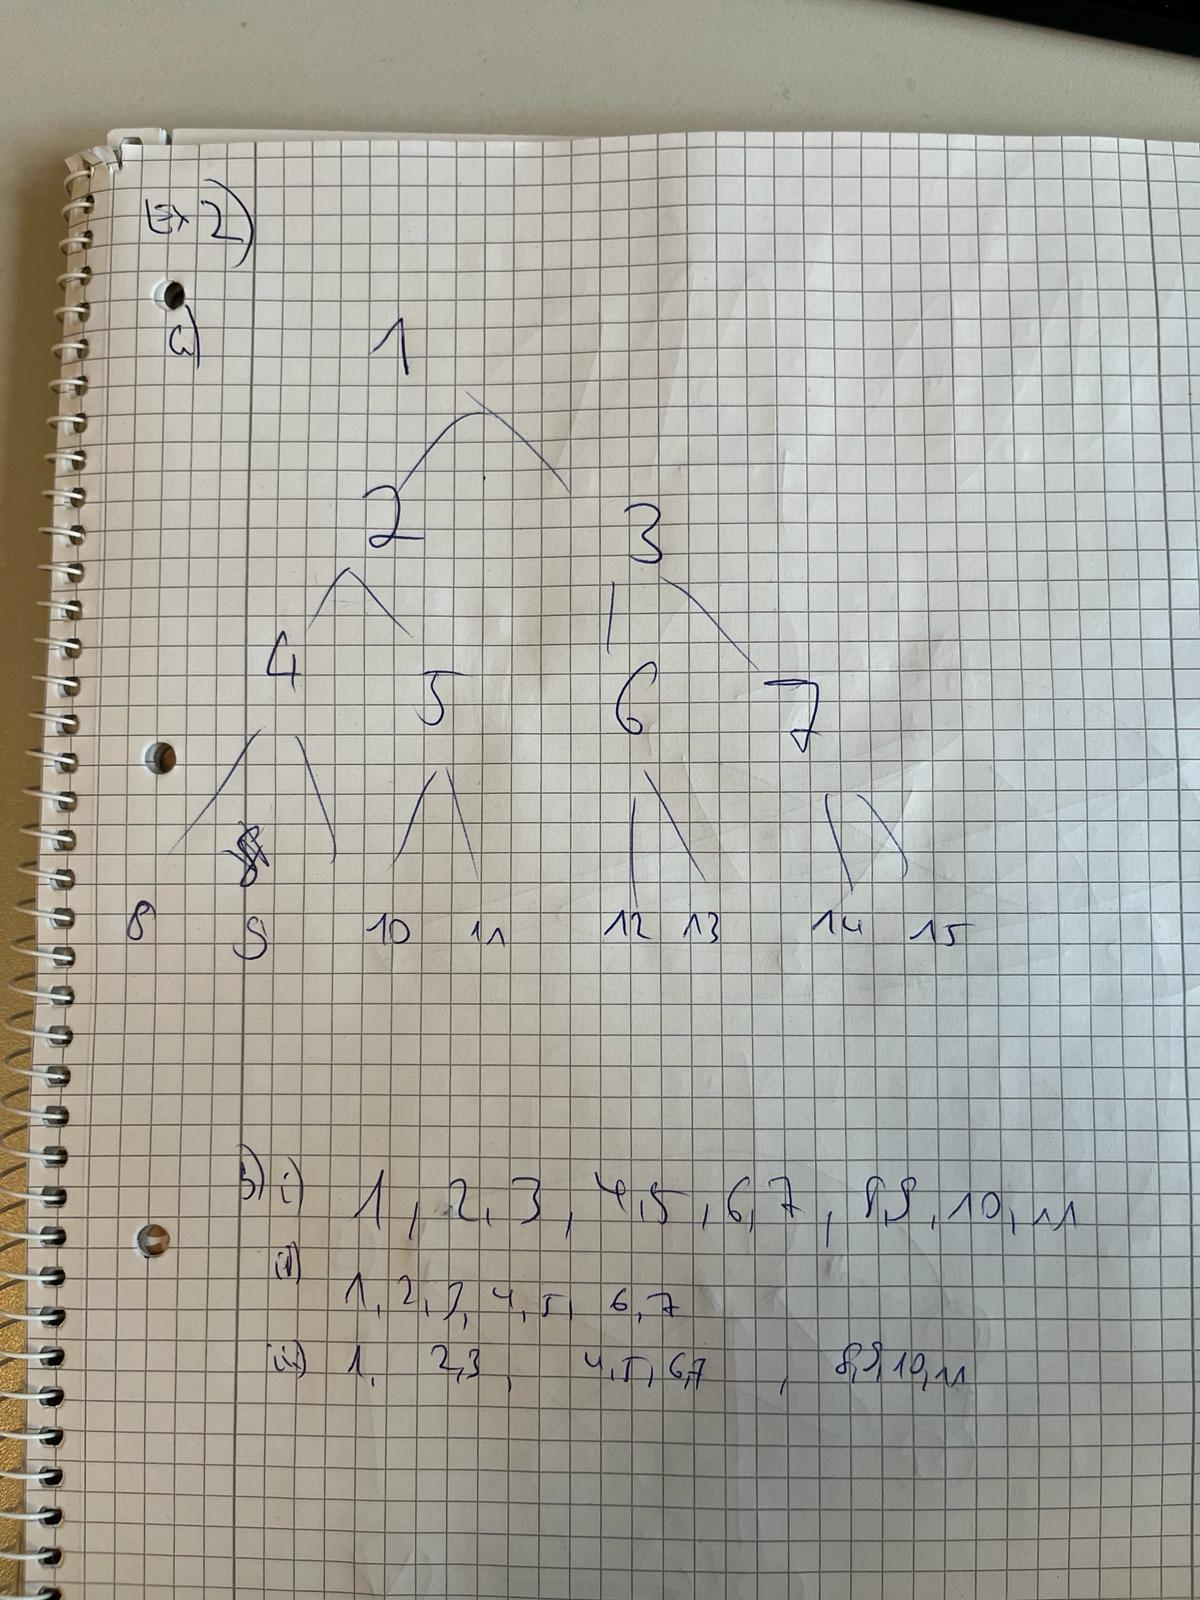 Ex 2)
a)
1
2 3
4 5 6 7
8 9 10 11 12 13 14 15
b) i) 1, 2, 3, 4,5, 6, 7, 8,9, 10, 11
ii) 1, 2, 3, 4, 5, 6, 7
iii) 1, 2,3, 4,5, 6,7, 8,9,10,11